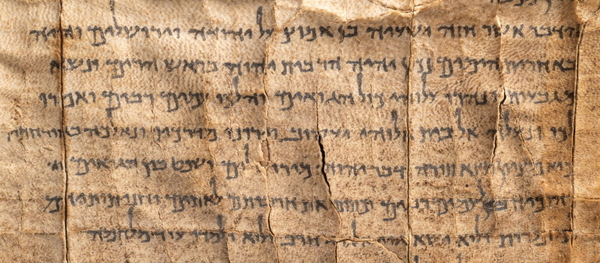 הדבר אשר חזה ישעיה בן אמוץ על יהודה וירושלים והיה
באחרית הימים נכון יהיה הר בית יהוה בראש הרים ונשא
מגבעות ונהרו עלוהי כול הגואים והלכו עמים רבים ואמרו
לכו ונעלה אל בית אלוהי יעקוב וירונו מדרכיו ונלכה באורחותיו
כיא מציון תצא תורה ודבר יהוה מירושלים ושפט בין הגואים
והוכיח לעמים רבים וכתתו את חרבותם לאתים
ולוא ישא גוי אל גוי חרב ולוא ילמדו עוד מלחמה